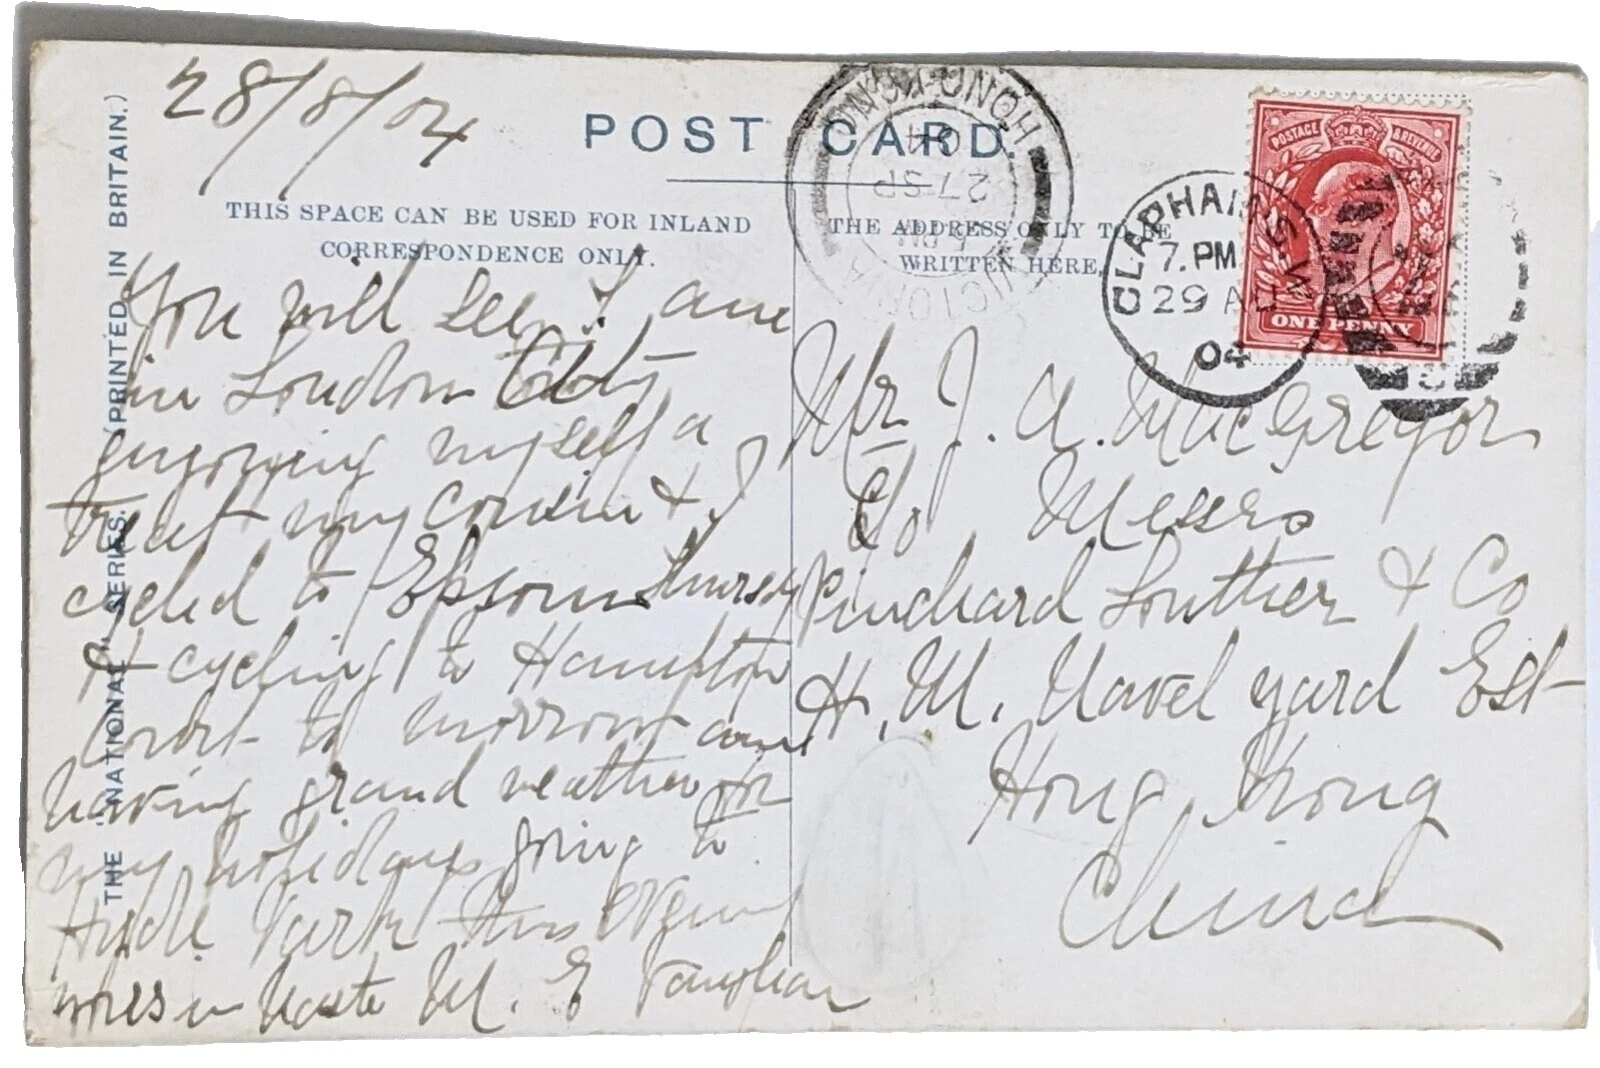 28/8/04
POST CARD.
THIS SPACE CAN BE USED FOR INLAND
CORRESPONDENCE ONLY.
THE ADDRESS ONLY TO BE
WRITTEN HERE.
THE "NATIONAL" SERIES. (PRINTED IN BRITAIN.)
You will see I am
in London
enjoying myself a
treat my cousin & I
cycled to Epsom
& cycling to Hampton
Court to morrow am
having grand weather for
my holidays going to
Hyde Park this
yours in haste M. E Vaughan
Mr J. A. MacGregor
C/o Messrs
Pinchard Lowther & Co
H. M. Navel yard Est
Hong Kong
China
HONG KONG
04
27 SP
VICTORIA
CLAPHAM S.
7. PM
29 AU
04
POSTAGE & REVENUE
ONE PENNY